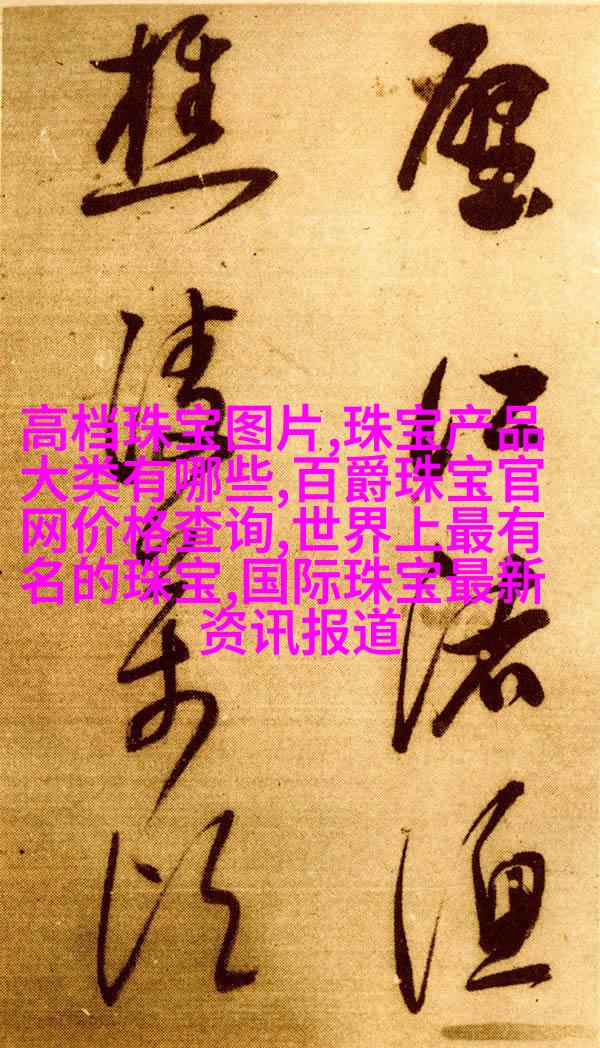 高档珠宝图片,珠宝产品
大类有哪些,百爵珠宝官
网价格查询,世界上最有
名的珠宝,国际珠宝最新
资讯报道
江渚漁
樵